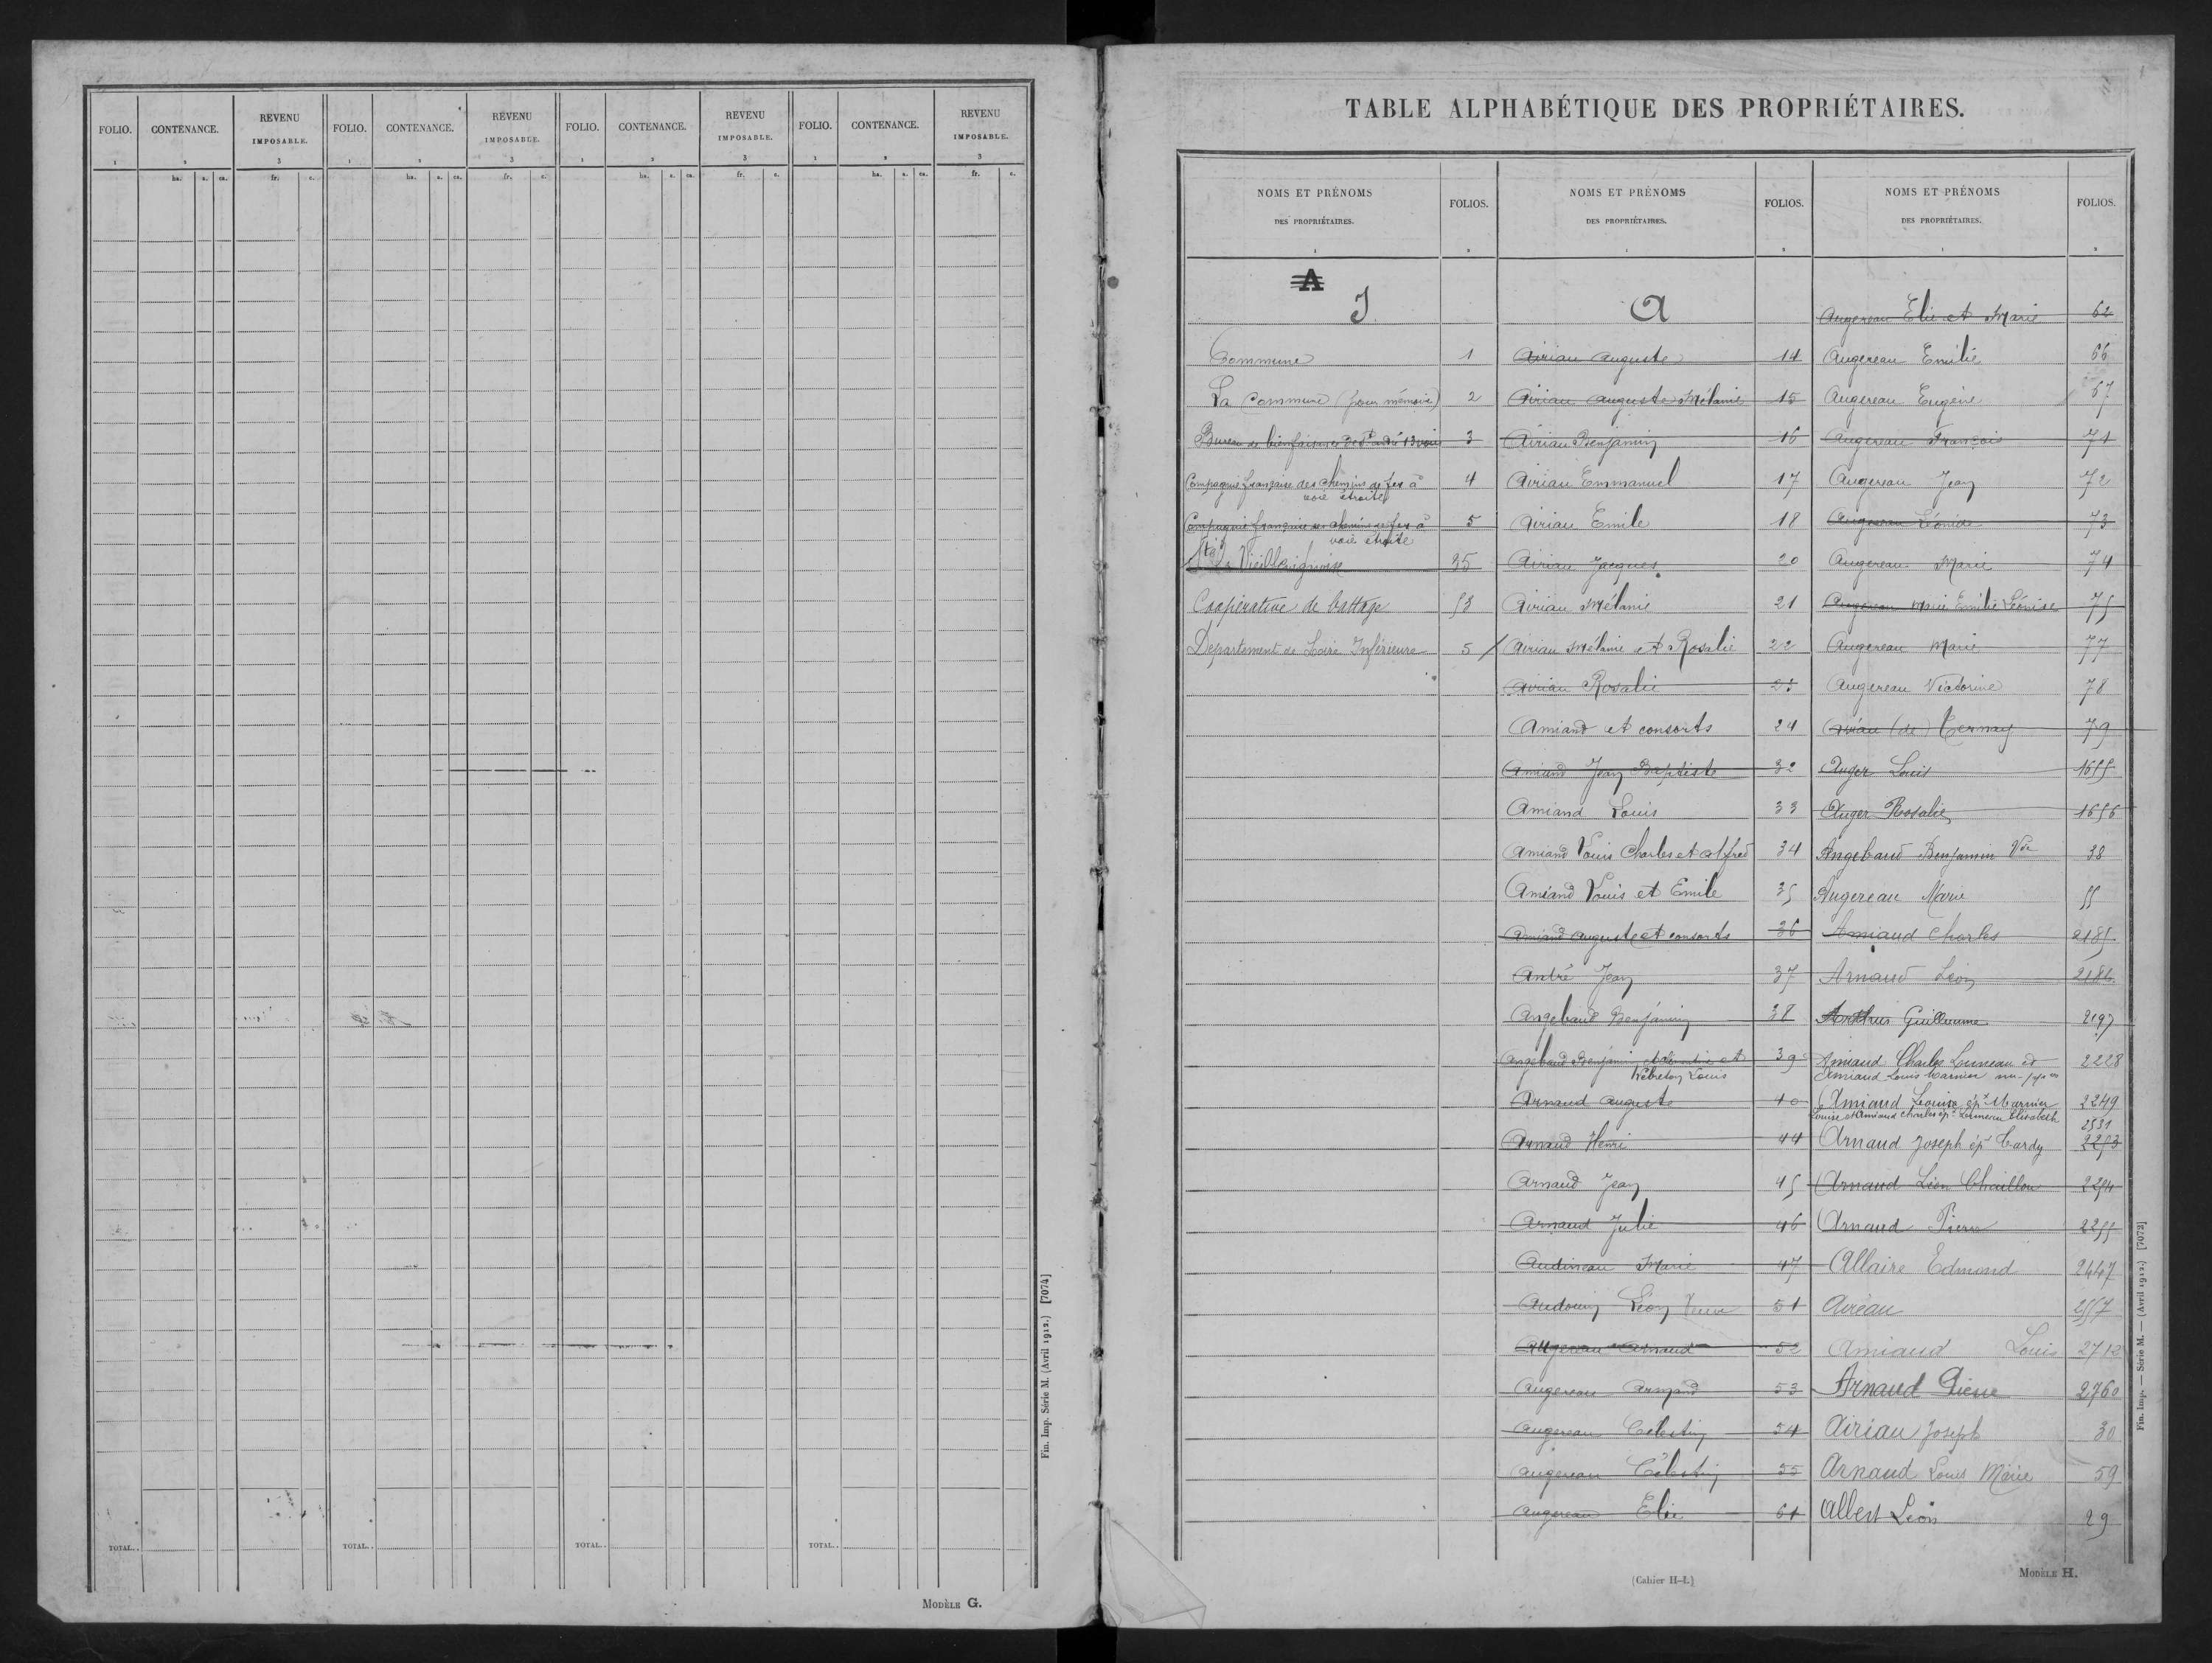 FOLIO. CONTENANCE. REVENU IMPOSABLE. FOLIO. CONTENANCE. REVENU IMPOSABLE. FOLIO. CONTENANCE. REVENU IMPOSABLE. FOLIO. CONTENANCE. REVENU IMPOSABLE.
1 2 3 1 2 3 1 2 3 1 2 3
ha. a. ca. fr. c. ha. a. ca. fr. c. ha. a. ca. fr. c. ha. a. ca. fr. c.
TOTAL.. TOTAL.. TOTAL.. TOTAL..
Fin. Imp. Série M. (Avril 1912.) [7074]
MODÈLE G.
TABLE ALPHABÉTIQUE DES PROPRIÉTAIRES.
NOMS ET PRÉNOMS
DES PROPRIÉTAIRES.
FOLIOS.
1 2
A
J
Commune 1
La Commune (pour mémoire) 2
Bureau de bienfaisance de St André 13 voies 3
Compagnie française des chemins de fer à
voie étroite 4
Compagnie française des chemins de fer à
voie étroite 5
Sté La Vieillevignoise 35
Coopérative de battage 53
Département de Loire Inférieure 5
NOMS ET PRÉNOMS
DES PROPRIÉTAIRES.
FOLIOS.
1 2
A
Airiau Auguste 14
Airiau Auguste Mélanie 15
Airiau Benjamin 16
Airiau Emmanuel 17
Airiau Emile 18
Airiau Jacques 20
Airiau Mélanie 21
Airiau Mélanie et Rosalie 22
Airiau Rosalie 23
Amiand et consorts 24
Amiand Jean Baptiste 32
Amiand Louis 33
Amiand Louis Charles et Alfred 34
Amiand Louis et Emile 35
Amiand Auguste et consorts 36
André Jean 37
Angebaud Benjamin 38
Angebaud Benjamin et et
Lebreton Louis 39
Arnaud Auguste 40
Arnaud Henri 44
Arnaud Jean 45
Arnaud Julie 46
Audineau Marie 47
Audouin Léon Veuve 51
Augereau Armand 52
Augereau Armand 53
Augereau Célestin 54
Augereau Célestin 55
Augereau Elie 61
NOMS ET PRÉNOMS
DES PROPRIÉTAIRES.
FOLIOS.
1 2
Augereau Elie et Marie 62
Augereau Emilie 66
Augereau Eugène 67
Augereau François 71
Augereau Jean 72
Augereau Léonide 73
Augereau Marie 74
Augereau Marie Emilie Léonise 75
Augereau Marie 77
Augereau Victorine 78
Aviau (de) Ternay 79
Auger Louis 1655
Auger Rosalie 1656
Angebaud Benjamin Vve 38
Augereau Marie 55
Amiaud Charles 2185
Arnaud Léon 2186
Arthus Guillaume 2197
Amiaud Charles Luneau et
Amiaud Louis Marnier 2228
Amiaud Louise épx Marnier
Louise et Amiaud Charles épx Luneau Elisabeth 2249
2531
Arnaud Joseph épx Cardy 2253
Arnaud Léon Chaillou 2254
Arnaud Pierre 2255
Allaire Edmond 2447
Aireau 2557
Amiaud Louis 2712
Arnaud Pierre 2760
Airiau Joseph 30
Arnaud Louis Marie 59
Albert Léon 29
(Cahier H-I.)
MODÈLE H.
Fin. Imp. — Série M. — (Avril 1912.) [7073]